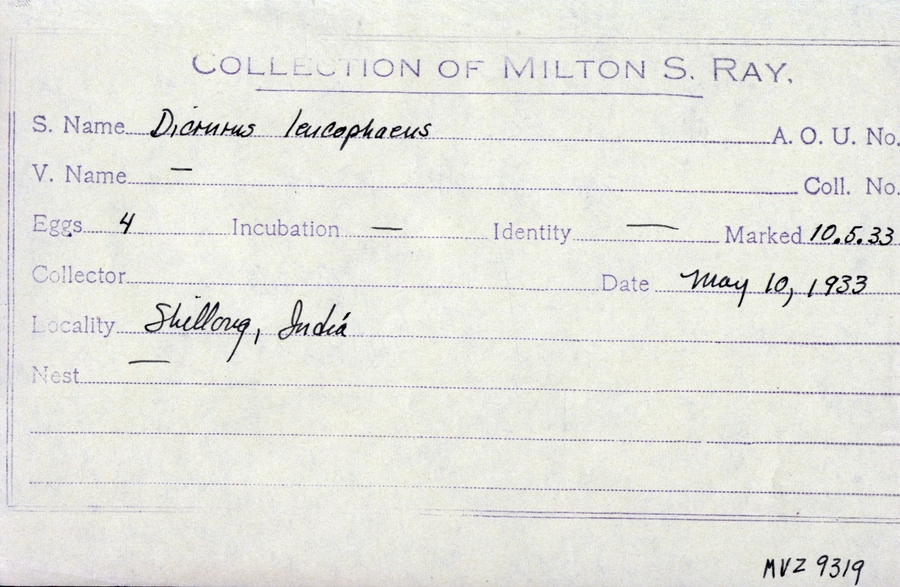 COLLECTION OF MILTON S. RAY.
S. Name Dicrurus leucophaeus A. O. U. No.
V. Name — Coll. No.
Eggs 4 Incubation — Identity — Marked 10.5.33
Collector Date May 10, 1933
Locality Shillong, India
Nest —
MVZ 9319